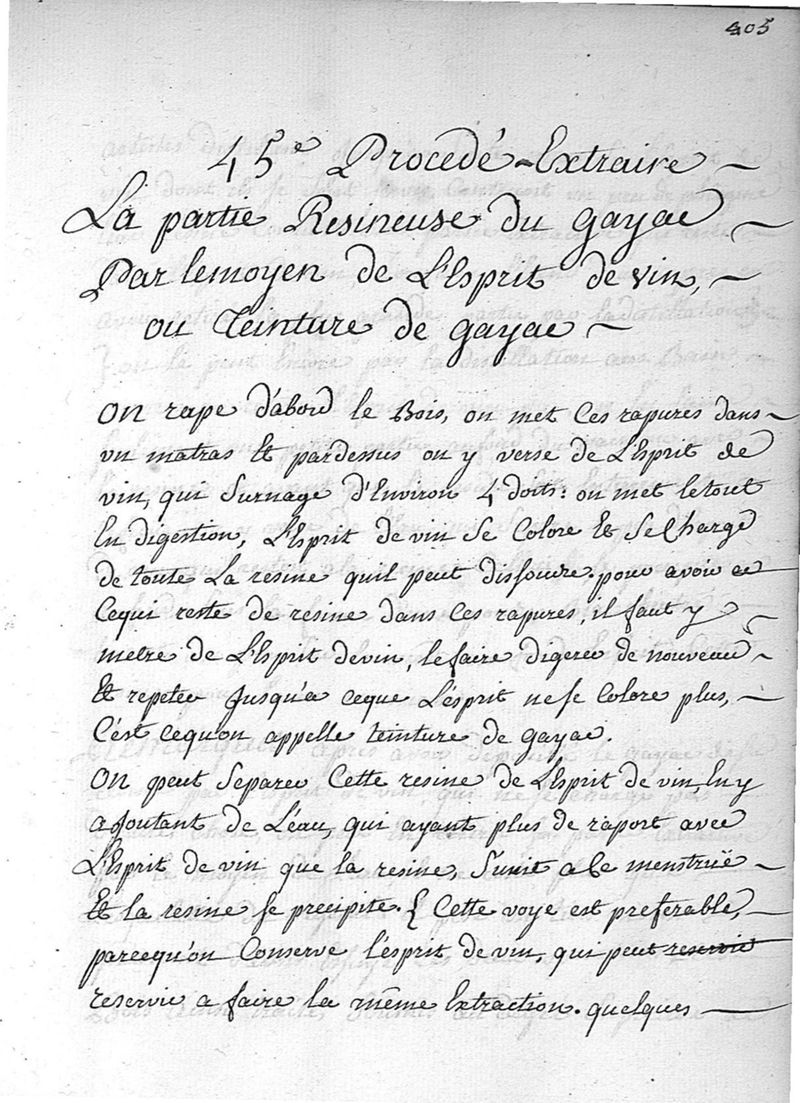 405
45e Procedé - Extraire
La partie Resineuse du gayac
Par lemoyen de L'Esprit de vin,
ou Teinture de gayac
On rape d'abord le Bois, on met Ces rapures dans
vn matras Et pardessus on y verse de L'Esprit de
vin, qui Surnage d'Environ 4 doits: on met le tout
En digestion, L'Esprit de vin Se Colore Et Se Charge
de toute La resine quil peut dissouvre. pour avoir
Cequi reste de resine dans Ces rapures, il faut y
metre de L'Esprit devin, le faire digerer de nouveau
Et repeter Jusqu'a ceque L'esprit ne se Colore plus,
C'est cequ'on appelle teinture de gayac.
On peut Separer Cette resine de L'Esprit de vin, En y
ajoutant de L'eau, qui ayant plus de raport avec
L'Esprit de vin que la resine, S'unit a Ce menstruë
Et la resine se precipite. { Cette voye est preferable,
parcequ'on Conserve l'esprit de vin, qui peut reservir
reservir a faire la même Extraction. quelques